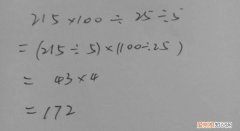 215×100÷25÷5
=(215÷5)×(100÷25)
= 43×4
=172